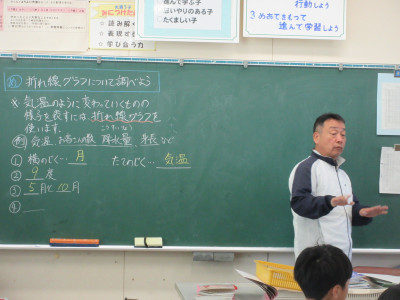 進んで学ぶ子
思いやりのある子
たくましい子
行動しよう
3 めあてをもって
進んで学習しよう
め 折れ線グラフについて調べよう
※気温のように変わっていくものの
様子を表すには折れ線グラフを
使います。
例 気温 お客さんの数 降水量 身長 など
① 横のじく… 月 たてのじく… 気温
② 9 度
③ 5月と10月
④